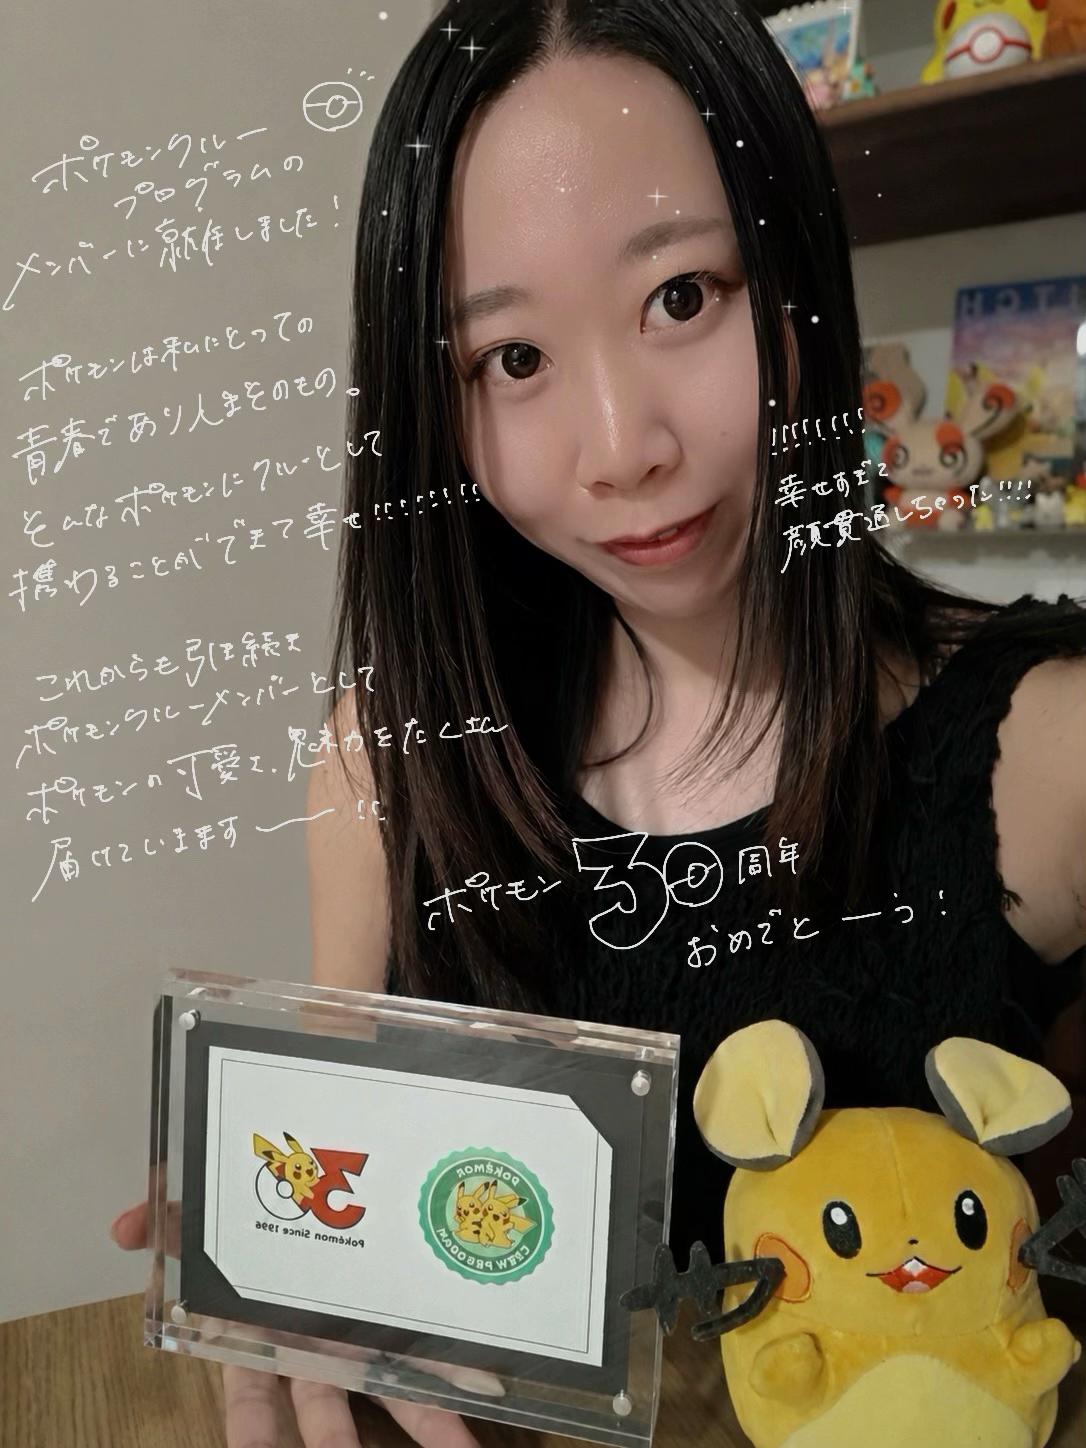 ポケモンクルー
プログラムの
メンバーに就任しました!
ポケモンは私にとっての
青春であり人生そのもの。
そんなポケモンにクルーとして
携わることができて幸せ!!!!!!!!
!!!!!!!!
幸せすぎて
顔貫通しちゃった!!!!
これからも引き続き
ポケモンクルーメンバーとして
ポケモンの可愛さ、魅力をたくさん
届けていきますー!!
ポケモン30周年
おめでとーう!
ITCH
30
Pokémon Since 1996
POKÉMON
CREW PROGRAM